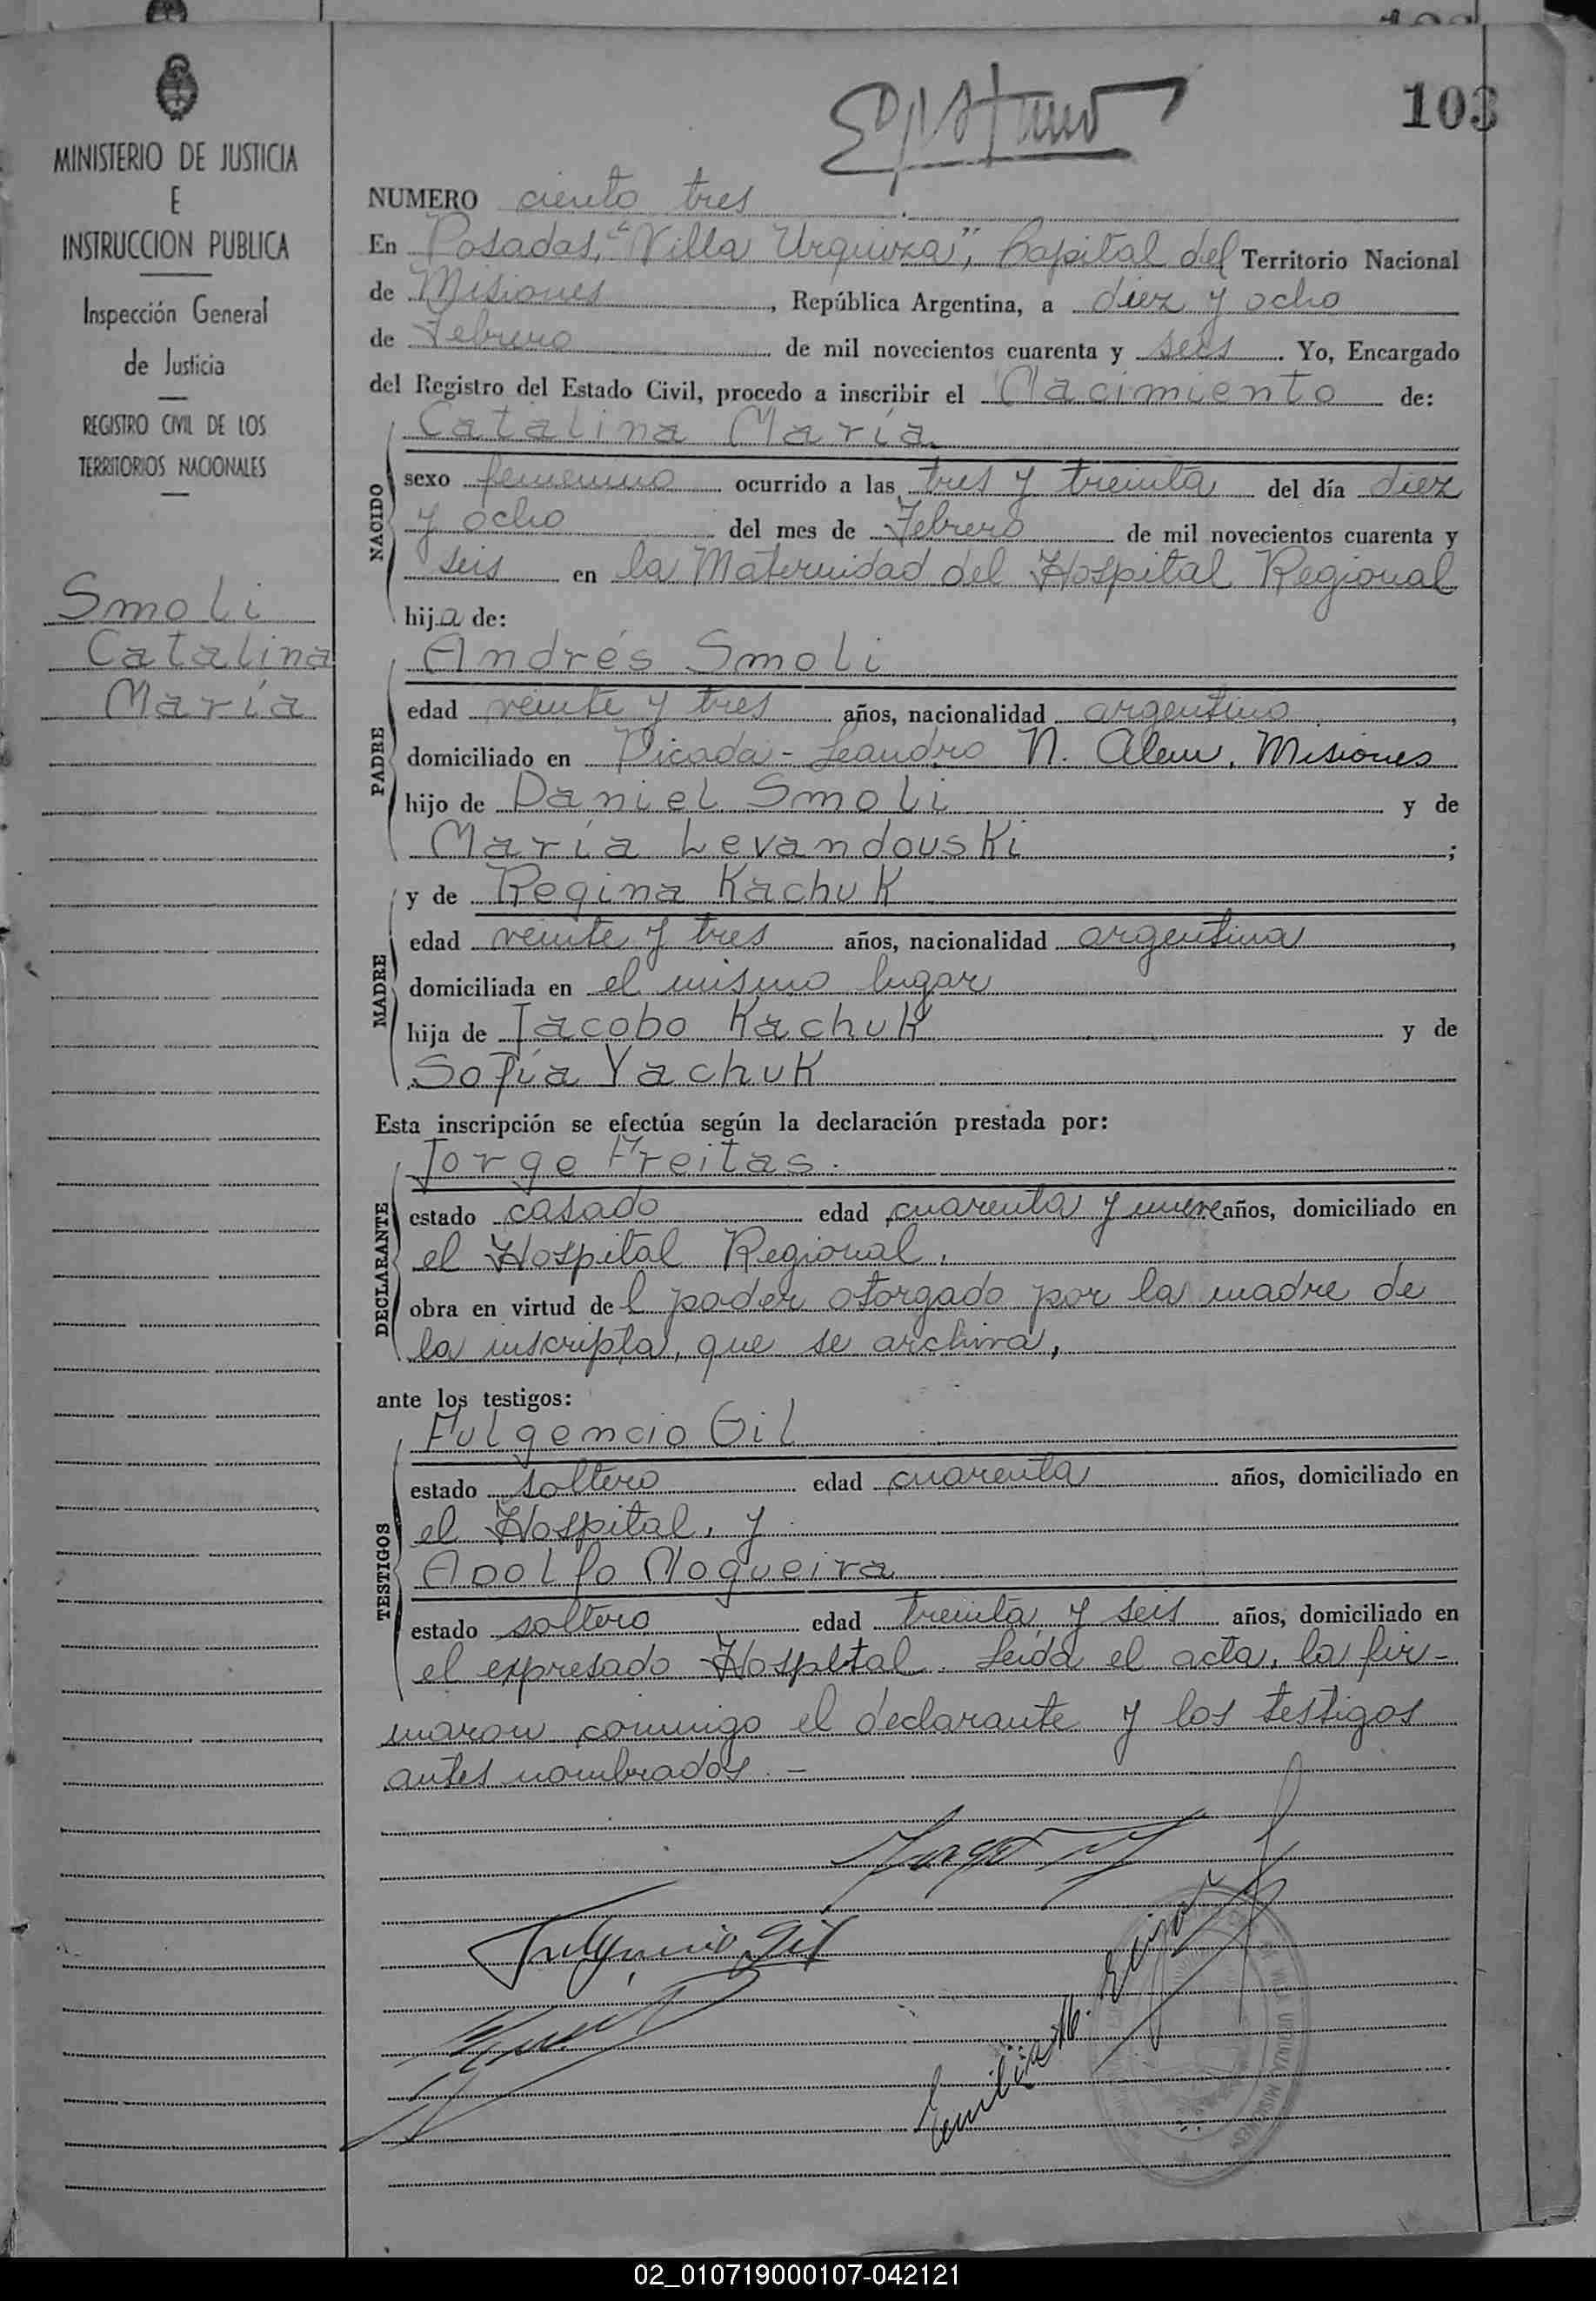 103
MINISTERIO DE JUSTICIA
E
INSTRUCCION PUBLICA
Inspección General
de Justicia
REGISTRO CIVIL DE LOS
TERRITORIOS NACIONALES
Smoli
Catalina
María
NUMERO ciento tres
En Posadas, "Villa Urquiza", Capital del Territorio Nacional
de Misiones, República Argentina, a diez y ocho
de Febrero de mil novecientos cuarenta y seis. Yo, Encargado
del Registro del Estado Civil, procedo a inscribir el Nacimiento de:
Catalina María
NACIDO
sexo femenino ocurrido a las tres y treinta del día diez
y ocho del mes de Febrero de mil novecientos cuarenta y
seis en la Maternidad del Hospital Regional
hija de:
Andrés Smoli
PADRE
edad veinte y tres años, nacionalidad argentino,
domiciliado en Picada - Leandro N. Alem, Misiones
hijo de Daniel Smoli y de
María Levandouski;
y de Regina Kachuk
MADRE
edad veinte y tres años, nacionalidad argentina,
domiciliada en el mismo lugar
hija de Jacobo Kachuk y de
Sofía Yachuk
Esta inscripción se efectúa según la declaración prestada por:
Jorge Freitas.
DECLARANTE
estado casado edad cuarenta y nueve años, domiciliado en
el Hospital Regional,
obra en virtud del poder otorgado por la madre de
la inscripta, que se archiva,
ante los testigos:
Fulgencio Gil
TESTIGOS
estado soltero edad cuarenta años, domiciliado en
el Hospital, y
Adolfo Nogueira
estado soltero edad treinta y seis años, domiciliado en
el expresado Hospital. Leída el acta, la fir-
maron conmigo el declarante y los testigos
antes nombrados. -
Fulgencio Gil
02_010719000107-042121